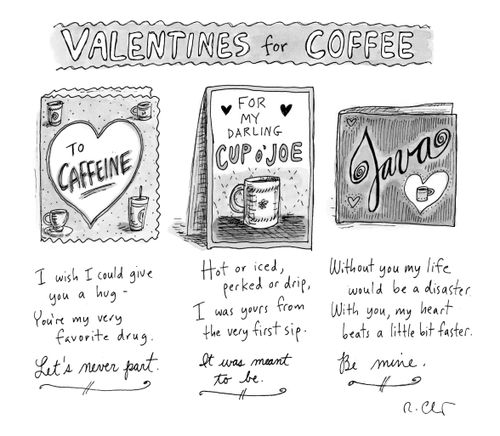 VALENTINES for COFFEE
TO
CAFFEINE
FOR
MY
DARLING
CUP o' JOE
Java
I wish I could give
you a hug -
You're my very
favorite drug.
Let's never part.
Hot or iced,
perked or drip,
I was yours from
the very first sip.
It was meant
to be.
Without you my life
would be a disaster.
With you, my heart
beats a little bit faster.
Be mine.